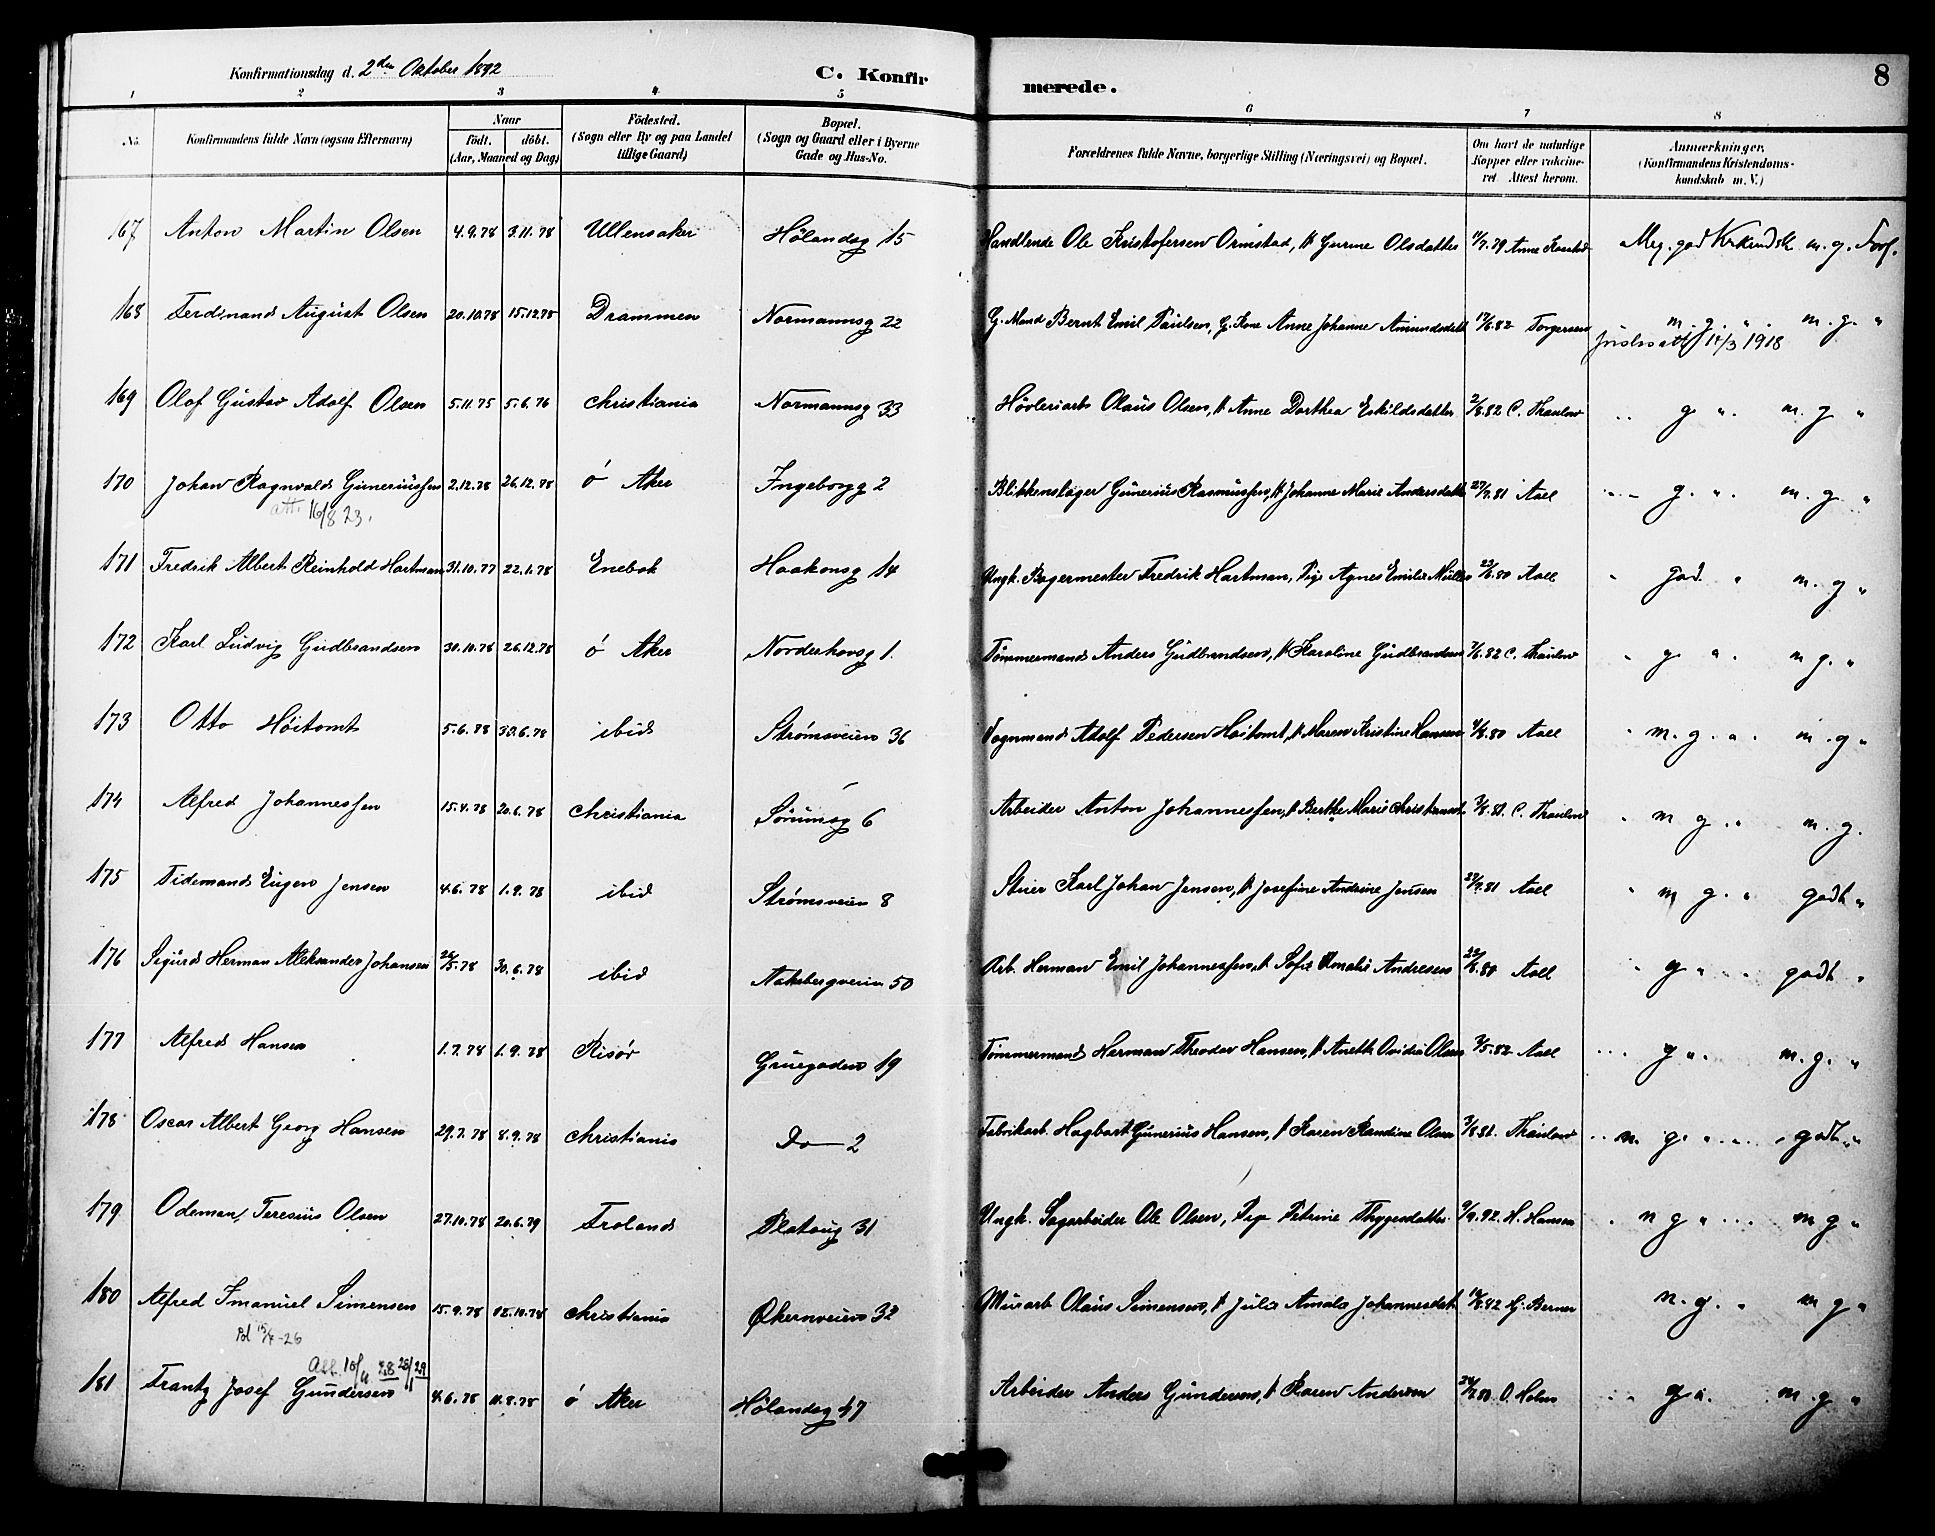 Konfirmationsdag d. 2den Oktober 1892 C. Konfirmerede. 8
1 2 3 4 5 6 7 8
No. Konfirmandens fulde Navn (ogsaa Efternavn) Naar Födt. döbt. (Aar, Maaned og Dag) Födested. (Sogn eller By og paa Landet tillige Gaard) Bopæl. (Sogn og Gaard eller i Byerne Gade og Hus-No. Forældrenes fulde Navne, borgerlige Stilling (Næringsvei) og Bopæl. Om havt de naturlige Kopper eller vakcineret Attest herom. Anmærkninger, (Konfirmandens Kristendomskundskab m. V.)
167 Anton Martin Olsen 4.9.78 3.11.78 Ullensaker Hølandsg 15 Handlende Ole Kristofersen Ormstad, h Gurine Olsdatter 11/7.79 Anne Meg. god Krkundsk m. g. Forh.
168 Ferdinand August Olsen 20.10.78 15.12.78 Drammen Normannsg 22 G. Mand Bernt Emil Paulsen, G. Kone Anne Johanne Amundsdatt 12/6.82 Torgersen m. g. " m. g. "
14/3 1918
169 Olof Gustav Adolf Olsen 5.11.75 5.6.76 Christiania Normannsg 33 Høvleriarb Olaus Olsen, h Anne Dorthea Eskildsdatter 2/8.82 C. Thaulow " g " m. g "
170 Johan Ragnvald Guneriussen 2.12.78 26.12.78 ø Aker Ingeborgg 2 Blikkenslager Gunerius Rasmussen, h Johanne Marie Andersdatt 27/7.81 Aall " g. " m. g. "
att. 16/8 23.
171 Fredrik Albert Reinhold Hartman 31.10.77 22.1.78 Enebak Haakonsg 14 Ungk. Bagermester Fredrik Hartman, Pige Agnes Emilie Müller 23/6.80 Aall " god " m. g "
172 Karl Ludvig Gudbrandsen 30.10.78 26.12.78 ø Aker Norderhovsg 1. Tømmermand Anders Gudbrandsen, h Karoline Gudbrandsen 7/6.82 C. Thaulow " g " m g. "
173 Otto Høitomt 5.6.78 30.6.78 ibid Strømsveien 36 Vognmand Adolf Pedersen Høitomt, h Maren Kristine Hansen 4/8.80 Aall " m. g. " m. g "
174 Alfred Johannessen 15.4.78 20.6.78 Christiania Sørumsg 6 Arbeider Anton Johannessen, h Berthe Marie 3/8.81. C. Thaulow " m g. " m. g.
175 Tidemand Eugen Jensen 4.6.78 1.9.78 ibid Strømsveien 8 Karl Johan Jensen, h Josefine Andrine Jensen 27/7.81 Aall " m g. " godt "
176 Sigurd Herman Aleksander Johansen 26/5.78 30.6.78 ibid Nakebergveien 50 Arb. Herman Emil Johannessen, h Sofie Amalie Andresen 22/6.80 Aall " g " godt "
177 Alfred Hansen 1.7.78 1.9.78 Risør Gruegaden 19 Tømmermand Herman Theodor Hansen, h Anette Ovidia Olsen 3/5.82 Aall " g " m. g. "
178 Oscar Albert Georg Hansen 29.7.78 8.9.78 Christiania Do 2 Fabrikarb. Hagbart Gunerius Hansen, h Karen Randine Olsen 3/8.81. Thaulow " m. g. " godt "
179 Odeman, Teresius Olsen 27.10.78 20.6.79 Froland Platoug 31 Ungk. Sagarbeider Ole Olsen, Pige Petrine Thygesdatter. 9/9.92. H. Hansen " m g " m g "
180 Alfred Imanuel Simensen 15.9.78 18.10.78 Christiania Økernveien 32 Murarb Olaus Simensen, h Julie Amalie Johannesdat 14/6.82 G. Berner m. g. " m g "
181 Frantz Josef Gundersen 4.6.78 11.8.78 ø Aker Hølandsg 17 Arbeider Anders Gundersen, h Karen Andersen 24/6.80. O. Holm " g " m. g "